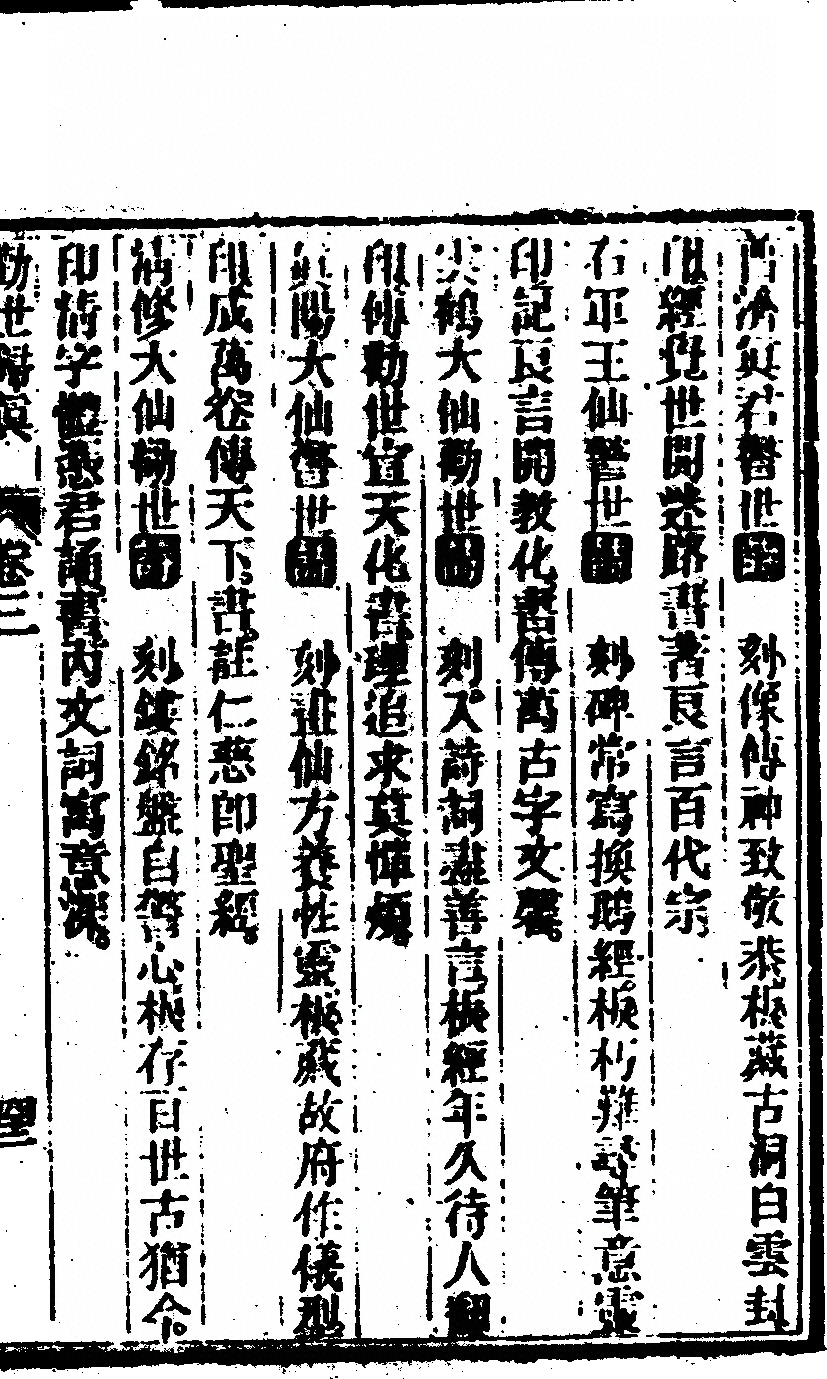 濟眞君醫世圖 刻像傳神致敬恭板藏古洞白雲封
印經覺世開迷路書著良言百代宗
右軍王仙警世圖 刻碑常寫換鵝經板朽難尋筆意靈
印記良言開教化書傳萬古字文馨
尖鶴大仙勸世圖 刻入詩詞盡善言板經年久待人翻
印傳勸世宣天化書理追求莫憚煩
眞陽大仙醫世圖 刻證仙方養性靈板藏故府作儀型
印成萬卷傳天下書註仁慈即聖經
清修大仙勸世圖 刻鏤銘盤自警心板存百世古猶今
印清字體憑君誦書內文詞寓意深
勸世歸眞 卷三